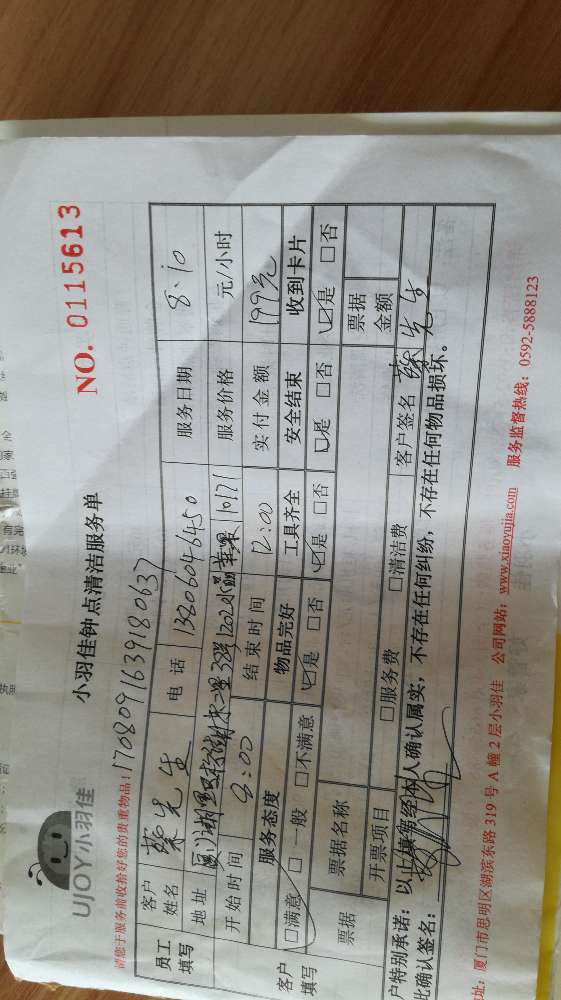 UJOY小羽佳
小羽佳钟点清洁服务单
NO. 0115613
请您于服务前收拾好您的贵重物品！1708091639180637
员工填写 客户姓名 蔡先生 电话 13806046450 服务日期 8、10
地址 服务价格 元/小时
开始时间 8:00 结束时间 12:00 实付金额 199元
客户填写 服务态度 物品完好 工具齐全 安全结束 收到卡片
□满意 □一般 □不满意 □是 □否 □是 □否 □是 □否 □是 □否
票据 票据名称 票据金额
开票项目 □服务费 □清洁费 客户签名 蔡先生
户特别承诺：以上填写经本人确认属实，不存在任何纠纷，不存在任何物品损坏。
此确认签名：
址：厦门市思明区湖滨东路 319 号 A 幢 2 层小羽佳 公司网站：www.xiaoyujia.com 服务监督热线：0592-5888123